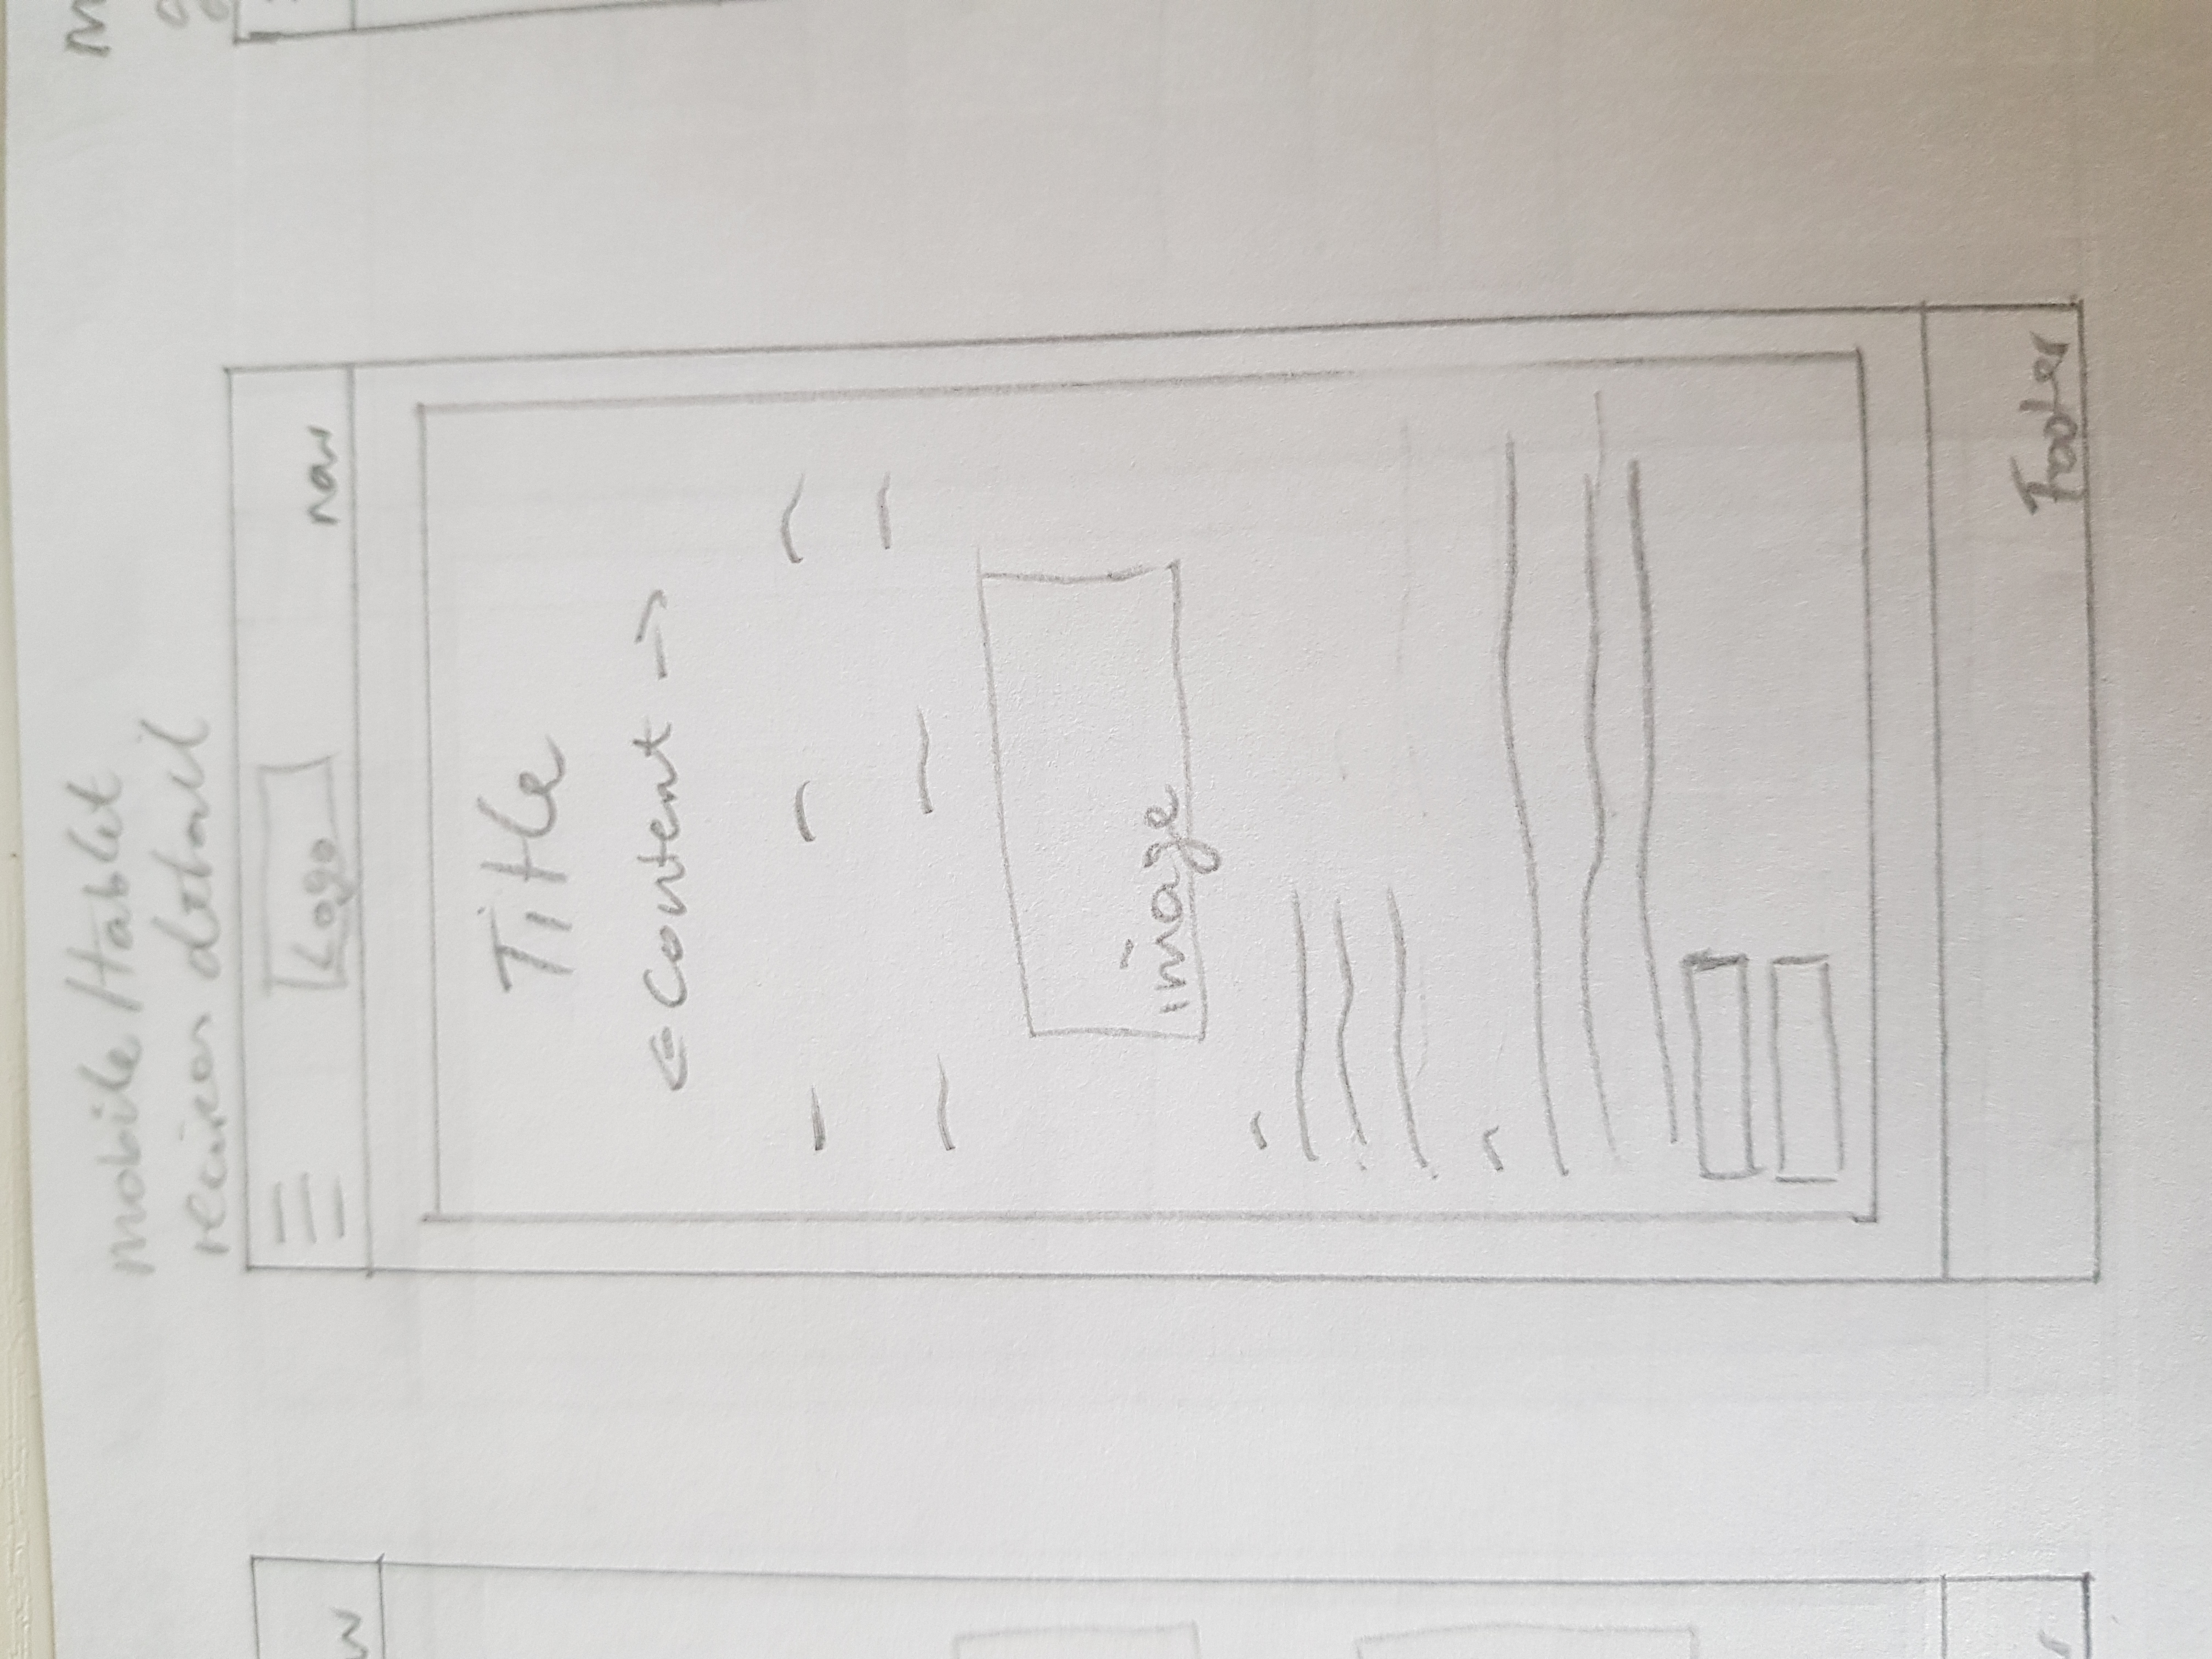 mobile/tablet
recipes detail
Logo
nav
Title
<- Content ->
image
Footer